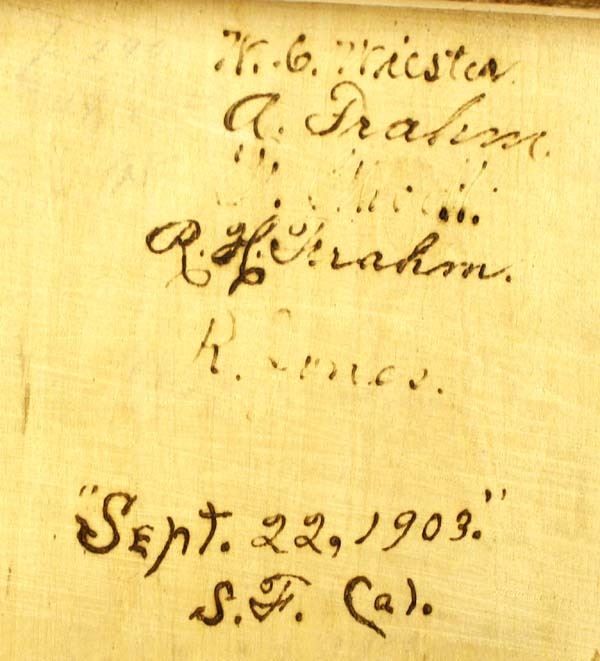 W. C. Wiester
A. Frahm.
R. H. Frahm.
R. Jones.
"Sept. 22, 1903."
S. F. Cal.